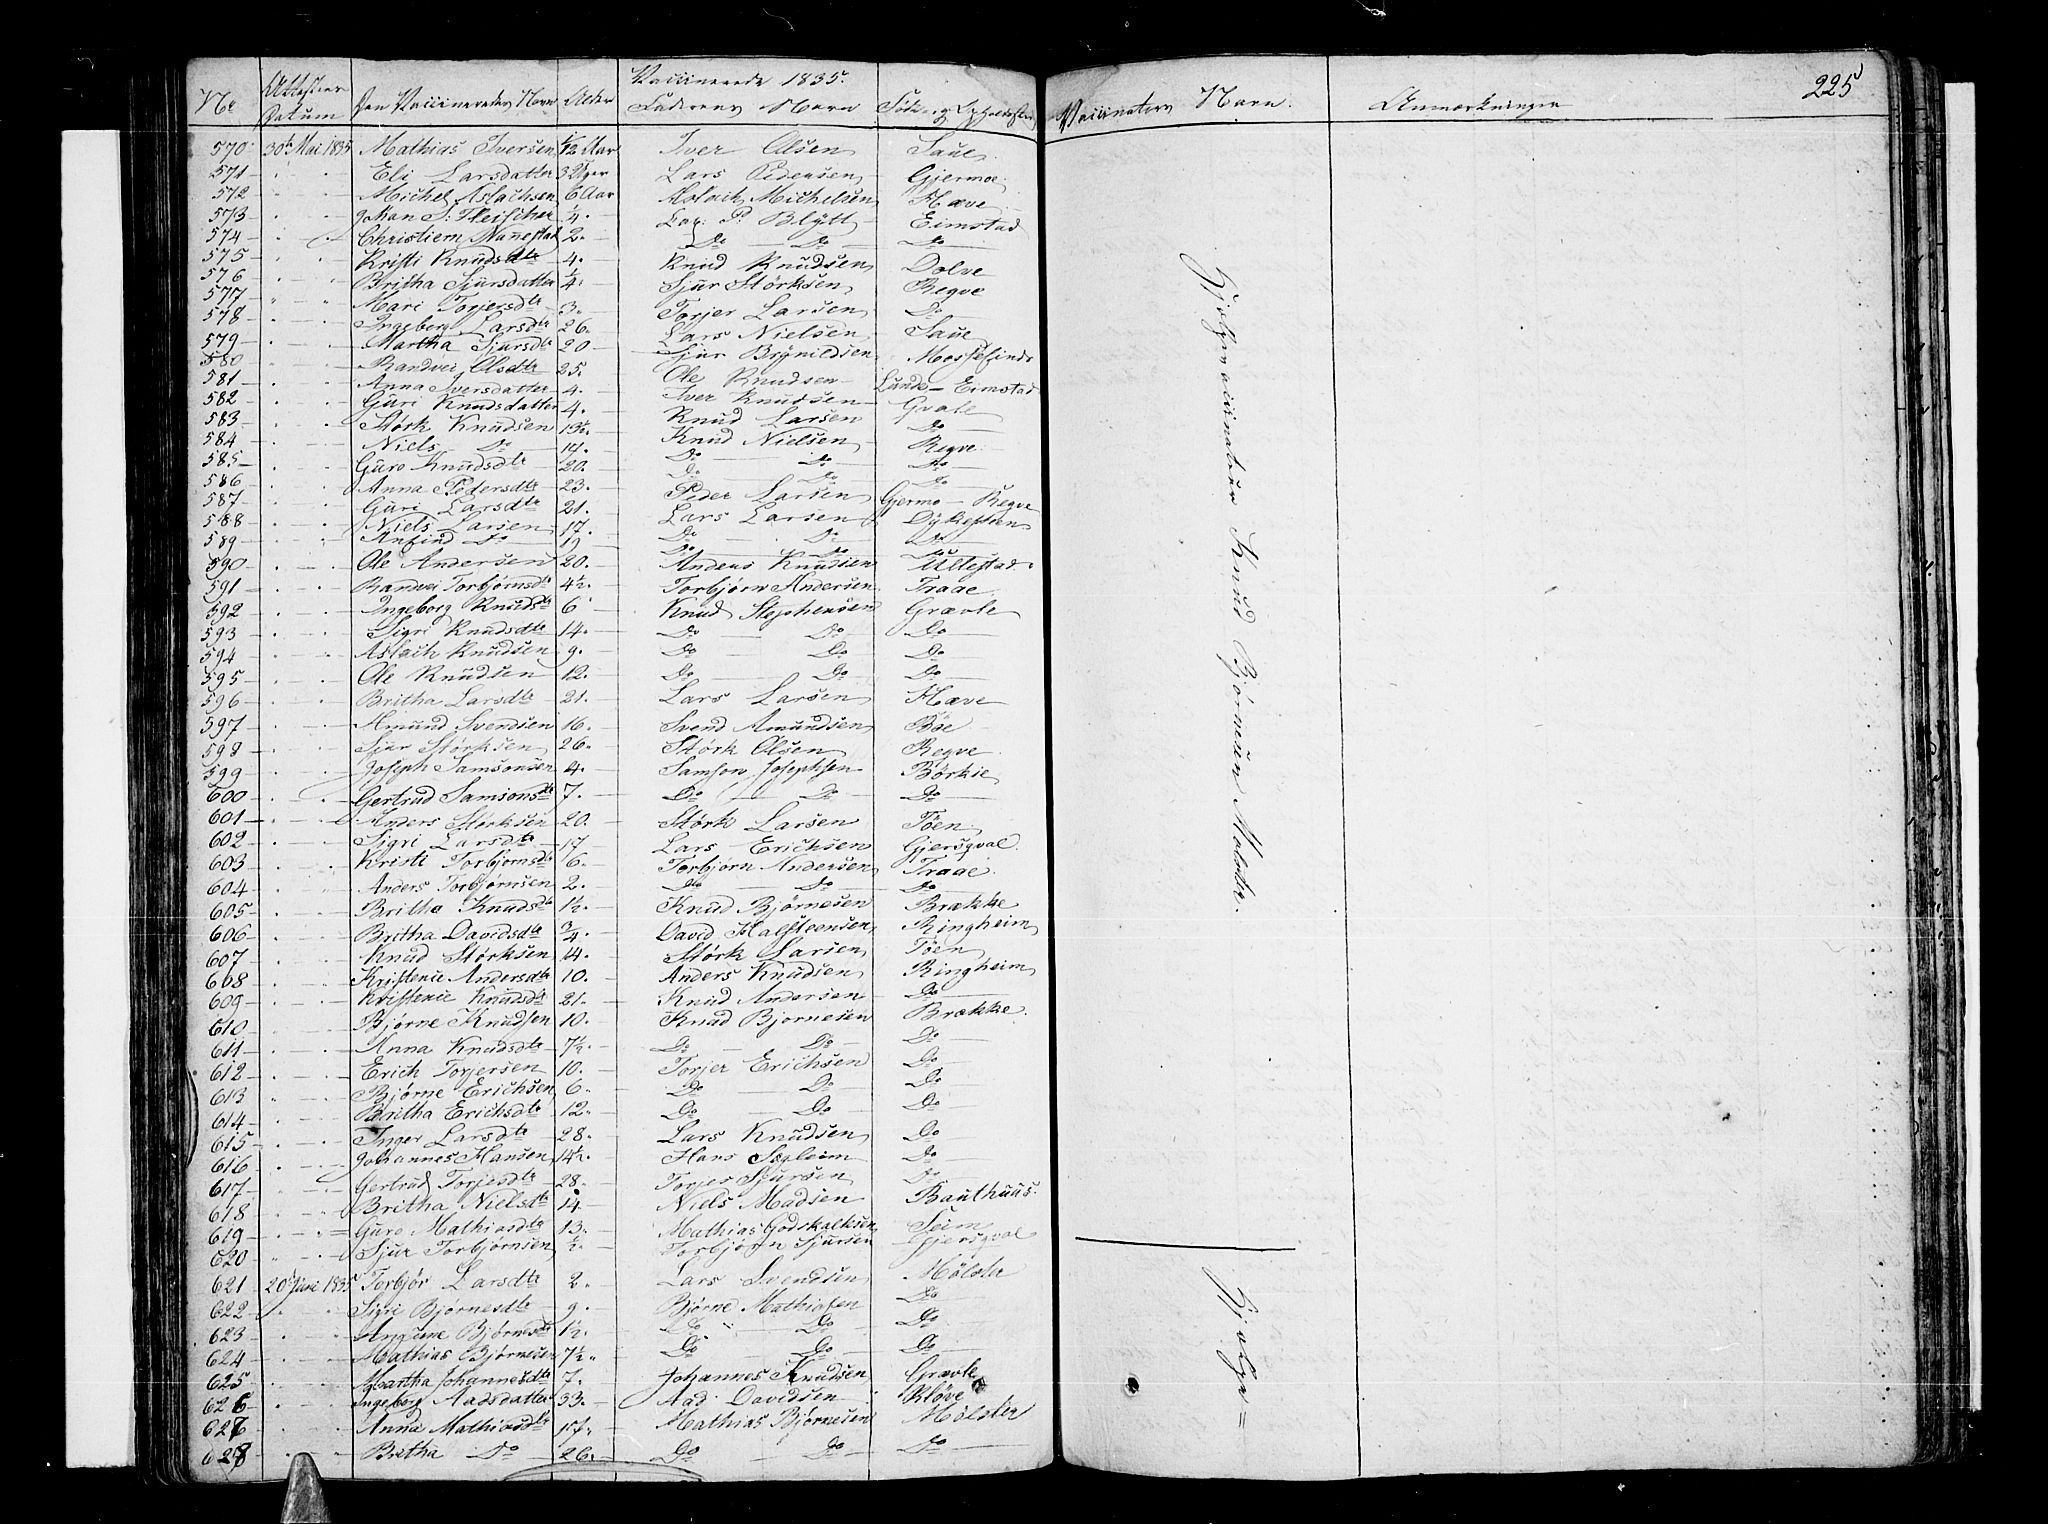 225
Vaccinerede 1835.
No Attesters Datum Den Vaccineredes Navn Alder Faderens Navn Føde- og Vaccinators Navn. Anmærkninger
570 30te Mai 1835 Mathias Iversen 1/12 Aar Iver Olsen Saue
571 Eli Larsdatter 3 Uger Lars Pedersen Gjermoe
572 Michel Aslachsen 6 Aar Aslach Michelsen Hæve
573 Johan S. Fleischer 1/4 Cap. P. Blÿtt Eimstad
574 Christiern Nannestad 2 Do Do Do
575 Kristi Knudsdtr 4 Knud Knudsen Dolve
576 Britha Sjursdatter 1/4 Sjur Störksen Regve
577 Mari Torjersdtr 3 Torjer Larsen Do
578 Ingeborg Larsdtr 26 Lars Nielsen Saue
579 Martha Sjursdtr 20 Sjur Brÿnildsen
580 Randvei Olsdtr 25 Ole Knudsen Lunde - Eimstad
581 Anna Iversdatter 4 Iver Knudsen Gvale
582 Guri Knudsdatter 4 Knud Larsen Do
583 Störk Knudsen 13½ Knud Nielsen Regve
584 Niels Do 14 Do Do Do
585 Guro Knudsdtr 20 Do Do Do
586 Anna Pedersdtr 23 Peder Larsen Gjermo - Regve
587 Guri Larsdtr 21 Lars Larsen Dÿkesteen
588 Niels Larsen 17 Do Do Do
589 Anfind Do 19 Do Do Do
590 Ole Andersen 20 Anders Knudsen Ullestad
591 Randvei Torbjørnsdtr 4½ Torbjørn Andersen Traae
592 Ingeborg Knudsdtr 6 Knud Stephensen Grævle
593 Sigri Knudsdtr 14 Do Do Do
594 Aslach Knudsen 9 Do Do Do
595 Ole Knudsen 12 Do Do Do
596 Britha Larsdtr 21 Lars Larsen Hæve
597 Amund Svendsen 16 Svend Amundsen Böe
598 Sjur Störksen 26 Störk Olsen Regve
599 Joseph Samsonsen 4 Samson Josephsen Börkie
600 Gertrud Samsonsdtr 7 Do Do Do
601 Anders Störksen 20 Störk Larsen Töen
602 Sigri Larsdtr 17 Lars Erichsen Gjersqval
603 Kristi Torbjørnsdtr 6 Torbjørn Andersen Traae
604 Anders Torbjørnsen 2 Do Do Do
605 Britha Knudsdtr 1½ Knud Bjørnesen Brække
606 Britha Davidsdtr 3/4 David Halsteensen Ringheim
607 Knud Störksen 4 Störk Larsen Töen
608 Kristenie Andersdtr 10 Anders Knudsen Ringheim
609 Kristenie Knudsdtr 21 Knud Andersen Do
610 Bjørne Knudsen 10 Knud Bjørnesen Brække
611 Anna Knudsdtr 7½ Do Do Do
612 Erich Torjersen 10 Torjer Erichsen Do
613 Bjørne Erichsen 6 Do Do Do
614 Britha Erichsdtr 12 Do Do Do
615 Inger Larsdtr 28 Lars Knudsen Do
616 Johannes Hansen 14½ Hans Do
617 Gertrud Torjesdtr 28 Torjes Sjursen Do
618 Britha Nielsdtr 14 Niels Madsen Bauthuus
619 Guro Mathiasdtr 13 Mathias Godskalksen Seim
620 Sjur Torbjørnsen ½ Torbjørn Sjursen Gjersqval
621 20 Juni 1835 Torbjør Larsdtr 2 Lars Svendsen Mölster
622 Sigri Bjørnesdtr 9 Bjørne Mathiasen Do
623 Bjørnesdtr 1½ Do Do Do
624 Mathias Bjørnesen 7½ Do Do Do
625 Martha Johannesdtr 7 Johannes Knudsen Grævle
626 Ingeborg Aadsdatter 33 Aad Davidsen Klöve
627 Anna Mathiasdtr 17 Mathias Bjørnesen Mölster
628 Britha Do 26 Do Do Do
Hjelpevaccinateur Knud Bjørnesen Mölster.